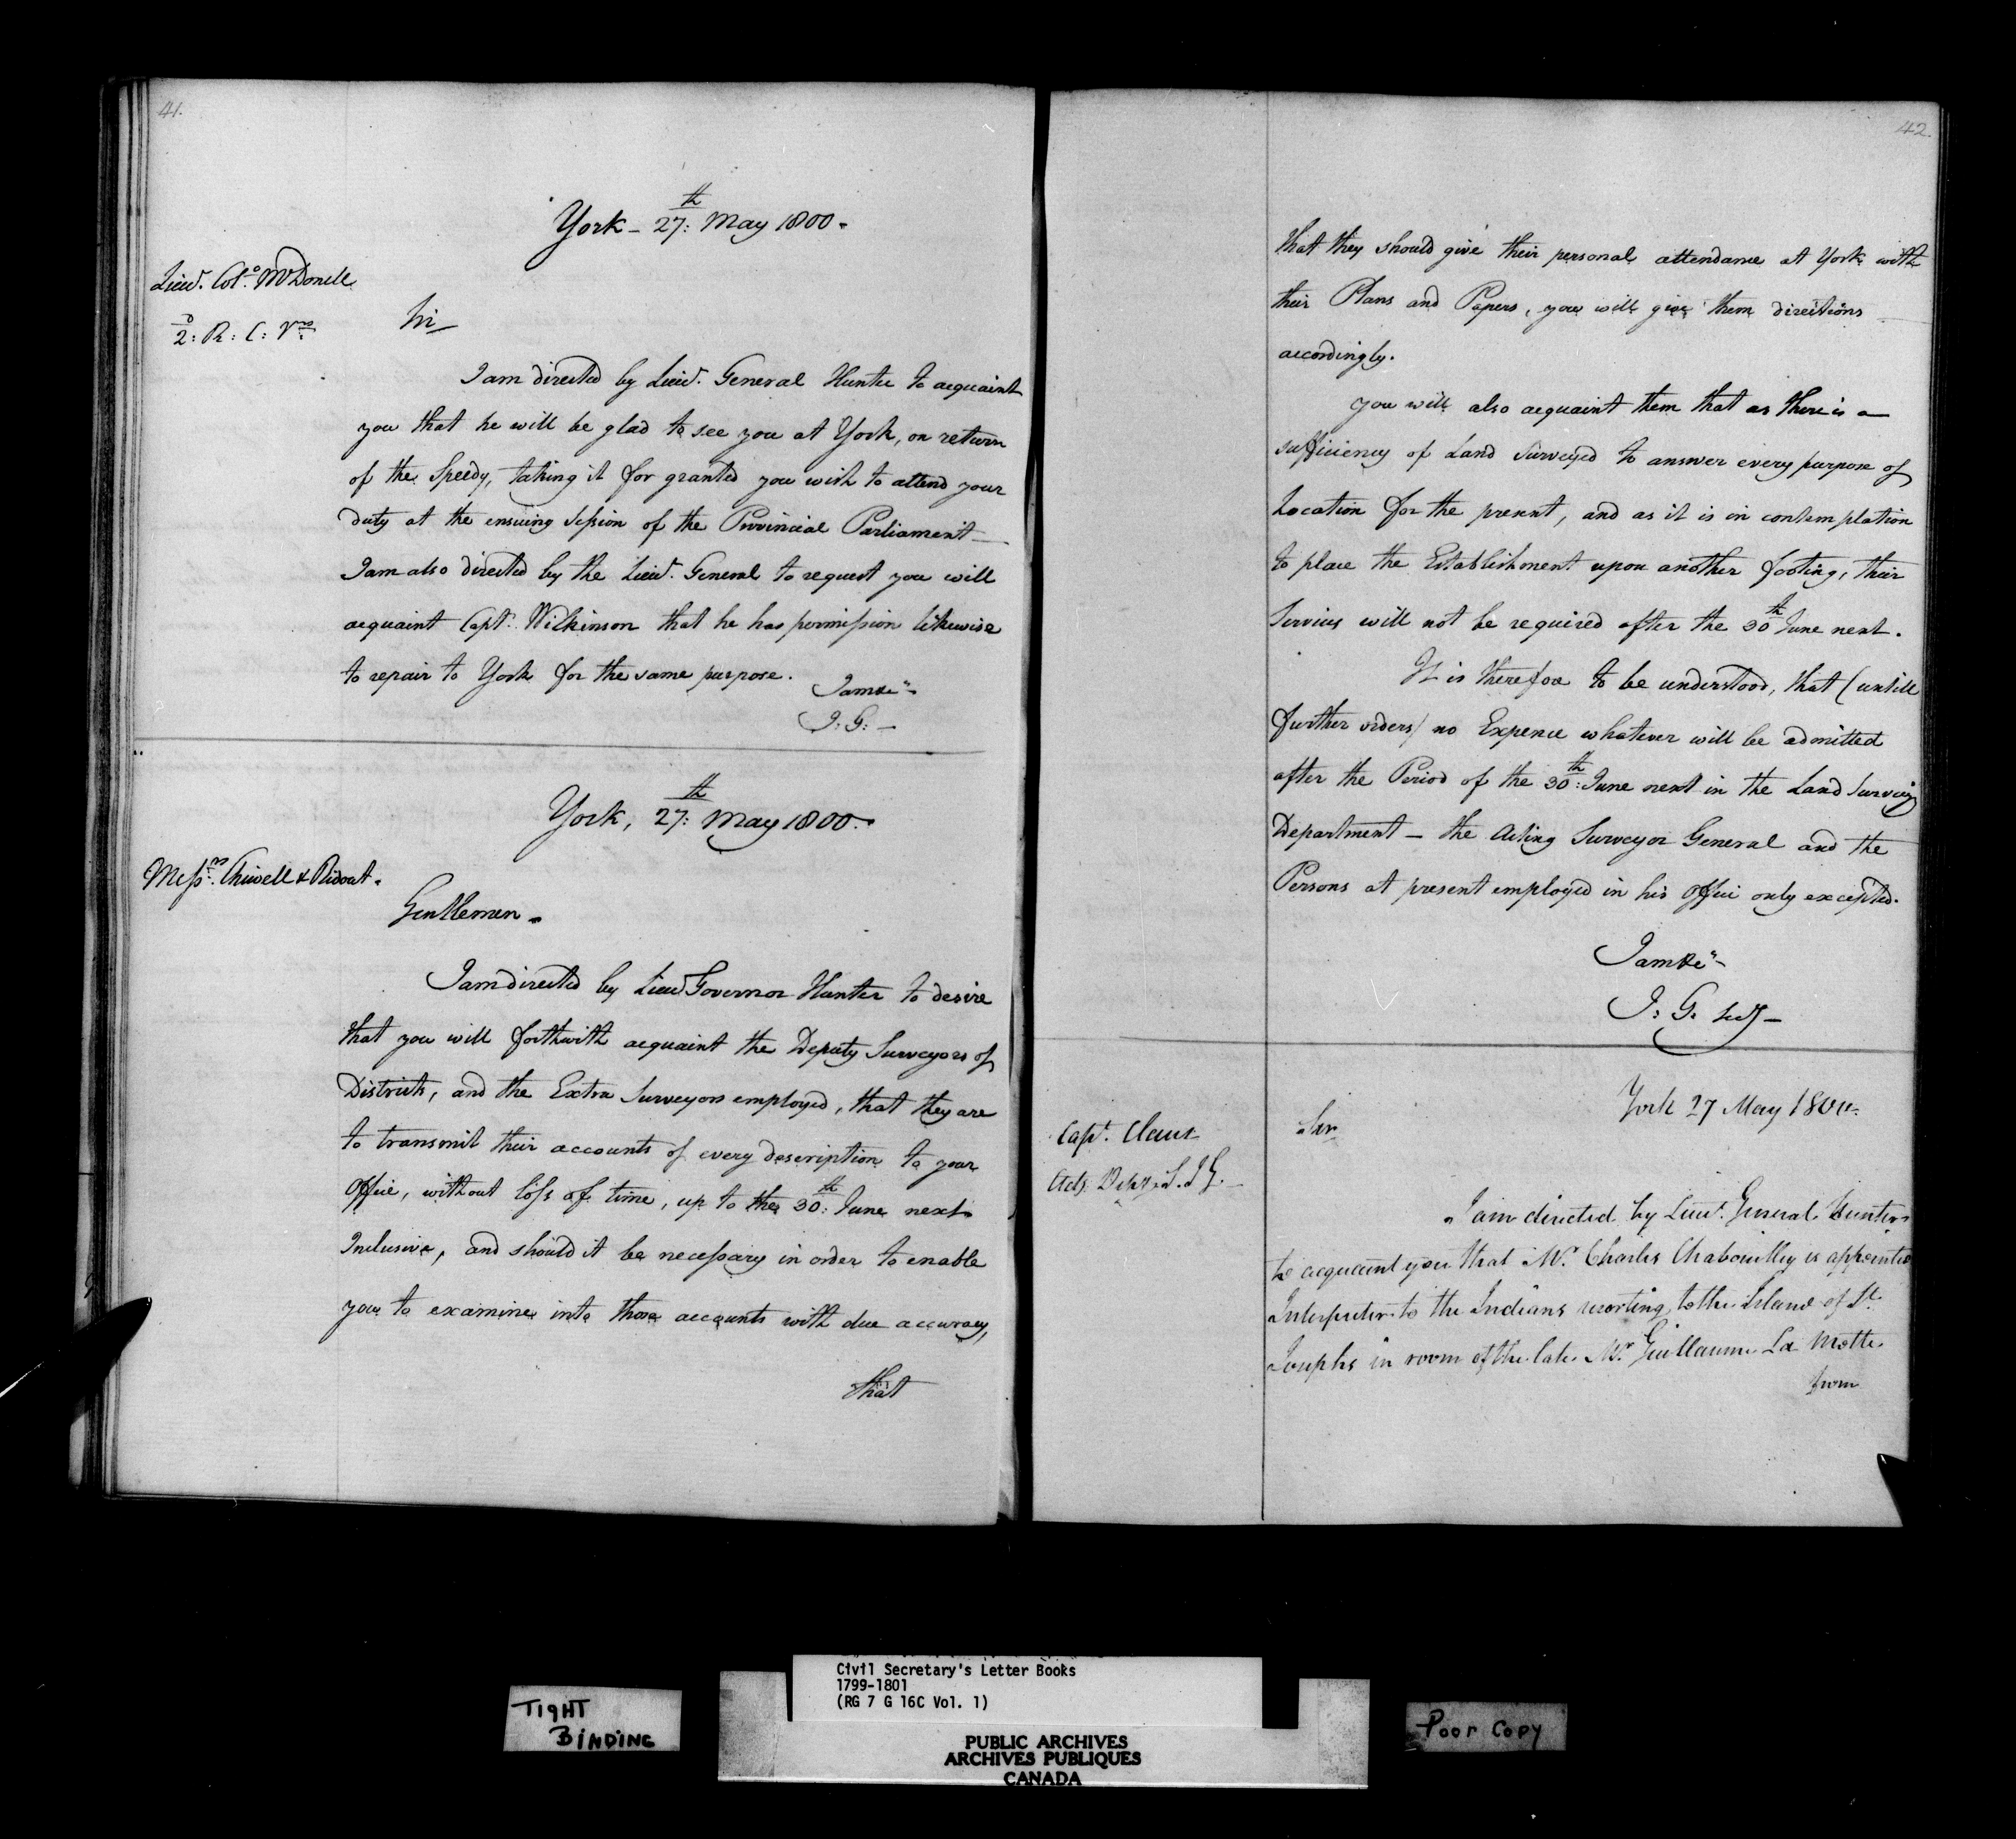 41.
York - 27:th May 1800.
Lieut. Colo. McDonell
2:d R: C: Vrs
Sir
I am directed by Lieut. General Hunter to acquaint
you that he will be glad to see you at York, on return
of the Speedy, taking it for granted you wish to attend your
duty at the ensuing Session of the Provincial Parliament -
I am also directed by the Lieut. General to request you will
acquaint Capt. Wilkinson that he has permission likewise
to repair to York for the same purpose.
I am &c"
J: G: -
York, 27:th May 1800.
Messrs. Chewell & Ridout.
Gentlemen.
I am directed by Lieut Governor Hunter to desire
that you will forthwith acquaint the Deputy Surveyors of
Districts, and the Extra Surveyors employed, that they are
to transmit their accounts of every description to your
Office, without loss of time, up to the 30:th June next
Inclusive, and should it be necessary in order to enable
you to examine into those accounts with due accuracy,
that
42.
that they should give their personal attendance at York with
their Plans and Papers, you will give them directions
accordingly.
You will also acquaint them that as there is a
sufficiency of Land Surveyed to answer every purpose of
Location for the present, and as it is in contemplation
to place the Establishment upon another footing, their
Services will not be required after the 30th June next.
It is therefore to be understood, that (untill
further orders) no Expence whatever will be admitted
after the Period of the 30:th June next in the Land Surveying
Department - the Acting Surveyor General and the
Persons at present employed in his Office only excepted.
I am &c"
J: G. Secy -
York 27 May 1800.
Capt. Claus
Actg. Depy. S. I G.
Sir
I am directed by Lieut. General Hunter
to acquaint you that Mr. Charles Chaboulley is appointed
Interpreter to the Indians resorting to the Island of St.
Josephs in room of the late Mr. Guillaume La Mothe
from
TIGHT
BINDING
Civil Secretary's Letter Books
1799-1801
(RG 7 G 16C Vol. 1)
PUBLIC ARCHIVES
ARCHIVES PUBLIQUES
CANADA
Poor Copy